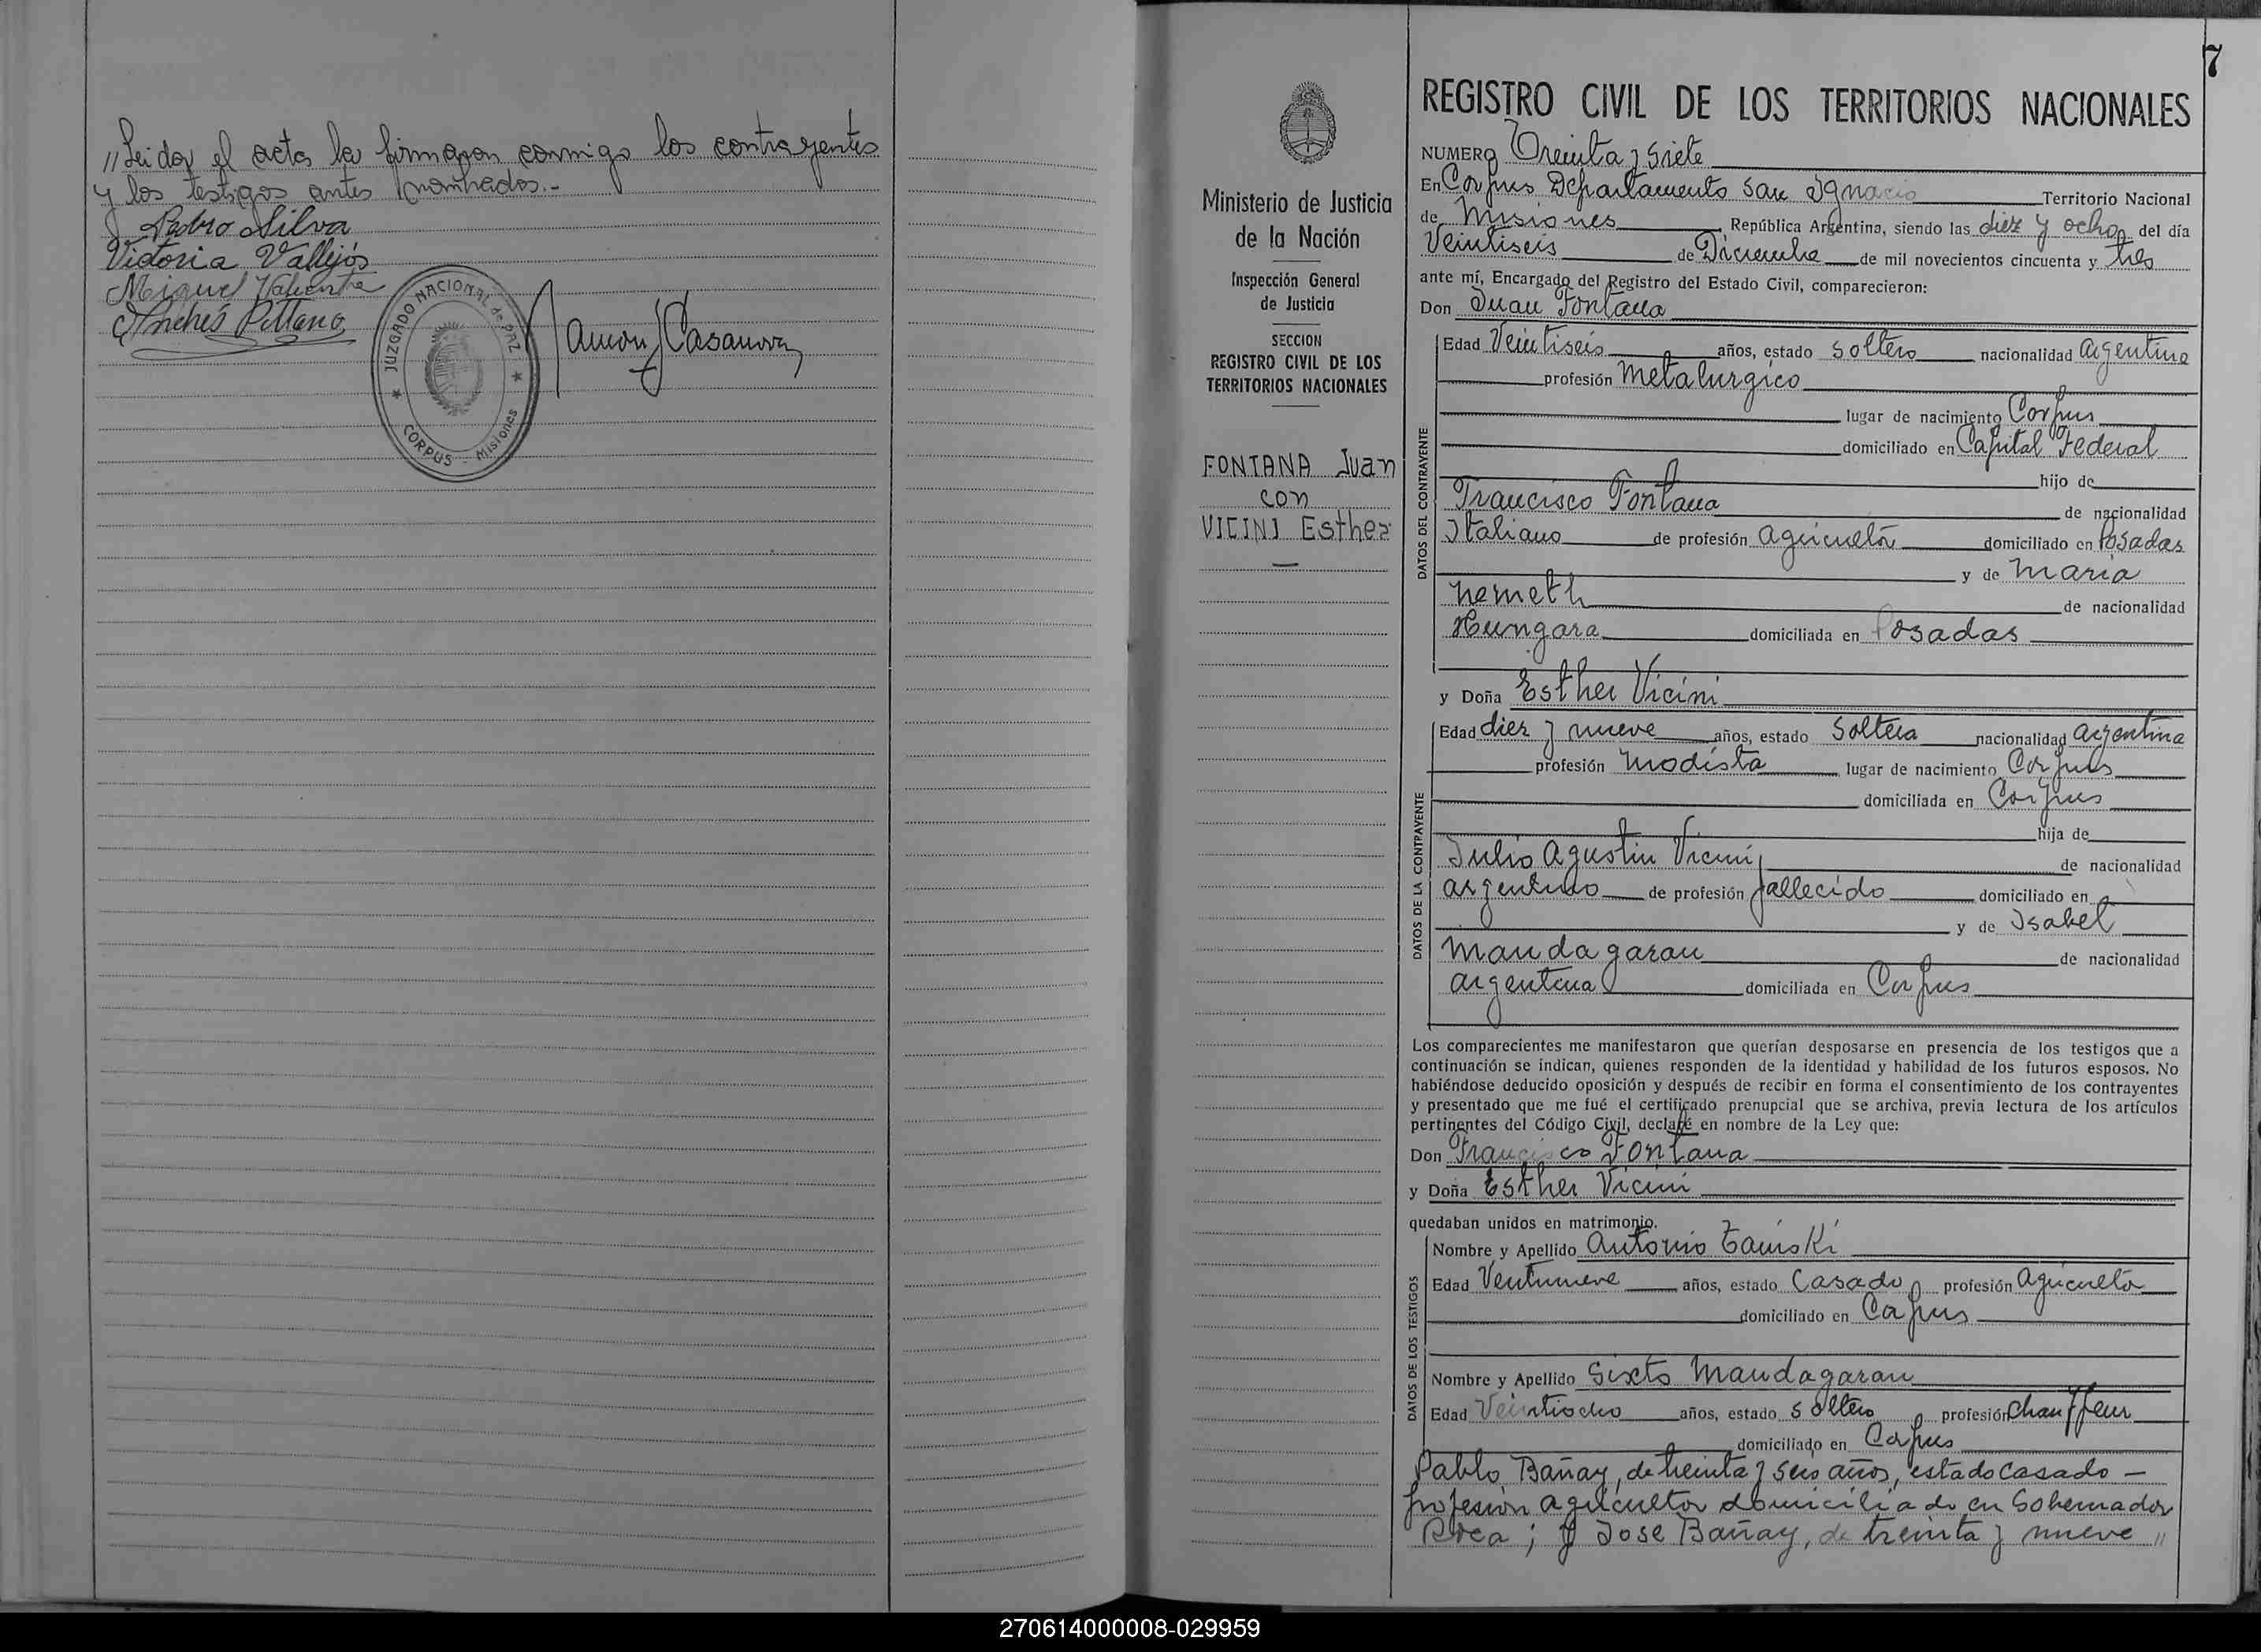 "Leida el acta la firmaron conmigo los contrayentes
y los testigos antes nombrados.-
Pedro Silva
Victoria Vallejos
Miguel
Pittano
JUZGADO NACIONAL de PAZ
CORPUS - Misiones
Ramon Casanova
7
Ministerio de Justicia
de la Nación
Inspección General
de Justicia
SECCION
REGISTRO CIVIL DE LOS
TERRITORIOS NACIONALES
FONTANA Juan
con
VICINI Esther
REGISTRO CIVIL DE LOS TERRITORIOS NACIONALES
NUMERO Treinta y siete
En Corpus Departamento San Ignacio Territorio Nacional
de Misiones, República Argentina, siendo las diez y ocho del día
Veintiseis de Diciembre de mil novecientos cincuenta y tres
ante mí, Encargado del Registro del Estado Civil, comparecieron:
Don Juan Fontana
DATOS DEL CONTRAYENTE
Edad Veintiseis años, estado soltero nacionalidad argentino
profesión metalurgico
lugar de nacimiento Corpus
domiciliado en Capital Federal
hijo de
Francisco Fontana de nacionalidad
Italiano de profesión agricultor domiciliado en Posadas
y de Maria
Nemeth de nacionalidad
Hungara domiciliada en Posadas
y Doña Esther Vicini
DATOS DE LA CONTRAYENTE
Edad diez y nueve años, estado soltera nacionalidad argentina
profesión modista lugar de nacimiento Corpus
domiciliada en Corpus
hija de
Julio Agustin Vicini de nacionalidad
argentino de profesión fallecido domiciliado en
y de Isabel
Mandagaran de nacionalidad
argentina domiciliada en Corpus
Los comparecientes me manifestaron que querían desposarse en presencia de los testigos que a
continuación se indican, quienes responden de la identidad y habilidad de los futuros esposos. No
habiéndose deducido oposición y después de recibir en forma el consentimiento de los contrayentes
y presentado que me fué el certificado prenupcial que se archiva, previa lectura de los artículos
pertinentes del Código Civil, declaré en nombre de la Ley que:
Don Francisco Fontana
y Doña Esther Vicini
quedaban unidos en matrimonio.
DATOS DE LOS TESTIGOS
Nombre y Apellido Antonio
Edad Ventinueve años, estado Casado profesión agricultor
domiciliado en Corpus
Nombre y Apellido Sixto Mandagaran
Edad Veintiocho años, estado soltero profesión Chauffeur
domiciliado en Corpus
Pablo Bañay, de treinta y seis años, estado casado -
profesion agricultor domiciliado en Gobernador
Roca; y Jose Bañay, de treinta y nueve "
270614000008-029959